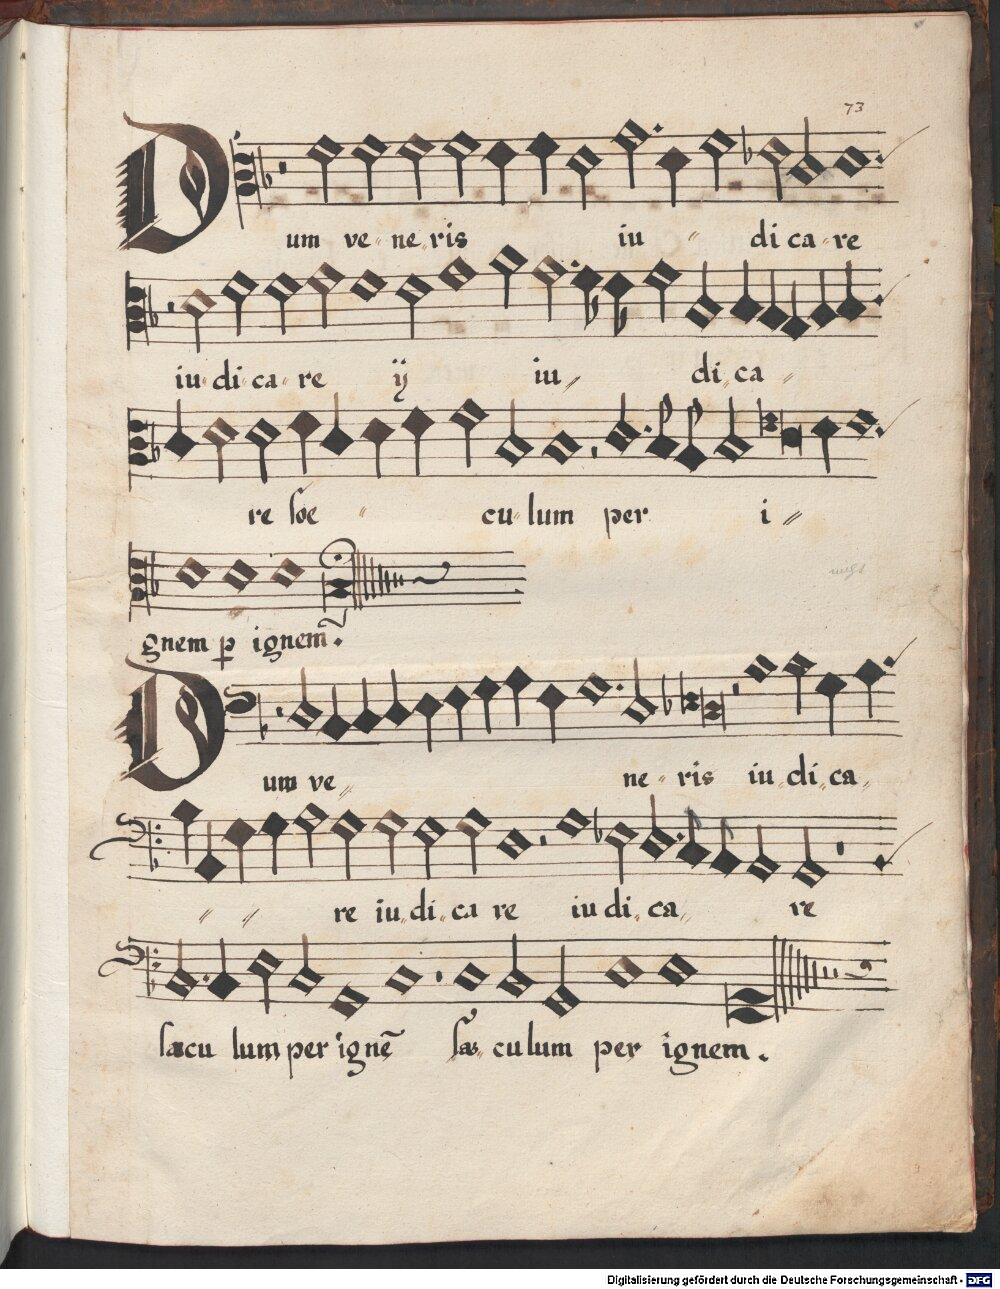 73
Dum ve ne ris iu di ca re
iu di ca re ij iu di ca
re sae cu lum per i
gnem p ignem.
Dum ve ne ris iu di ca
re iu di ca re iu di ca re
saecu lum per ignē sae culum per ignem.
Digitalisierung gefördert durch die Deutsche Forschungsgemeinschaft - DFG